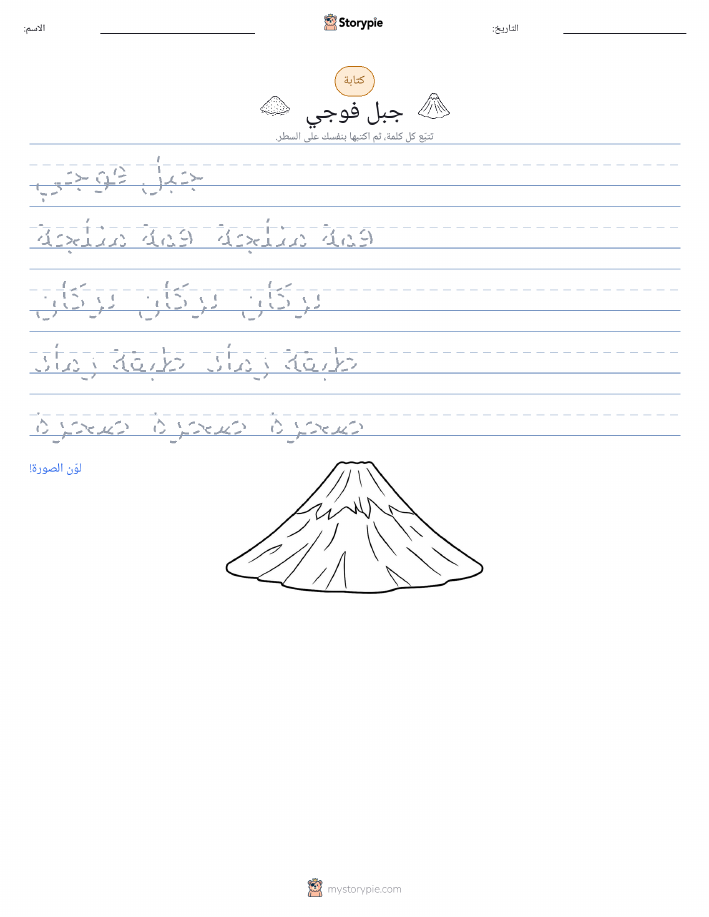 الاسم:
Storypie
التاريخ:
كتابة
جبل فوجي
تتبّع كل كلمة، ثم اكتبها بنفسك على السطر.
جبل فوجي
قمة مثلجة قمة مثلجة
بركان بركان بركان
طبقة رماد طبقة رماد
صخرة صخرة صخرة
لوّن الصورة!
mystorypie.com